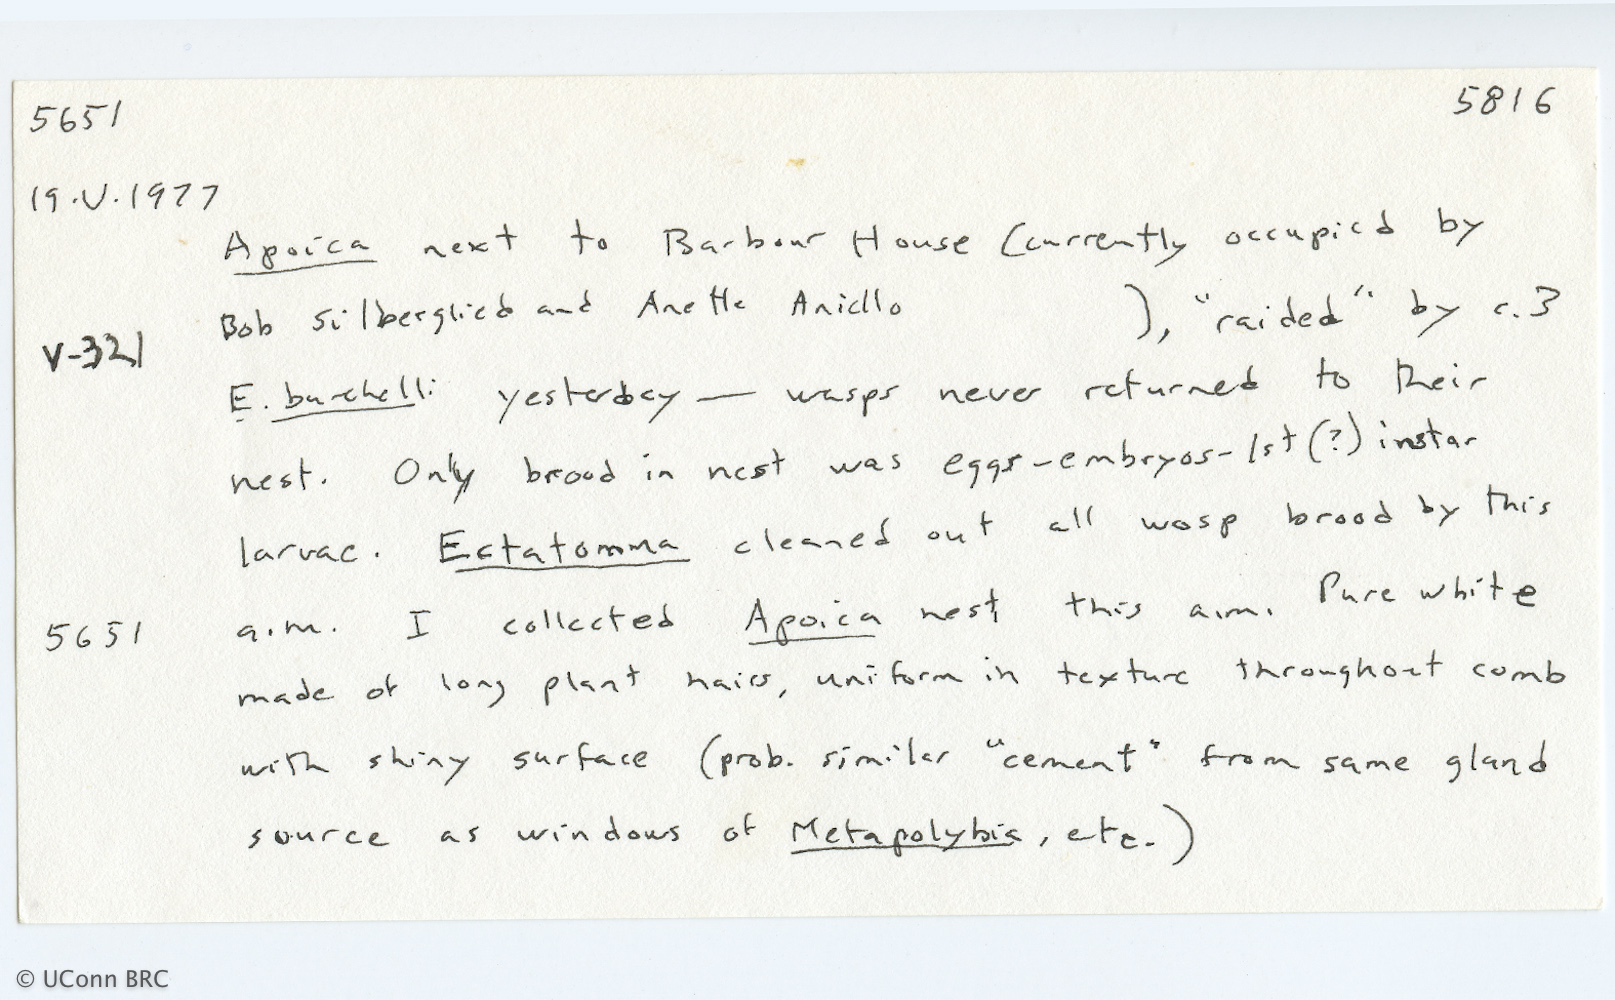 5651 5816
19.V.1977
Apoica next to Barbour House (currently occupied by
Bob Silberglied and Anette Aniello ), "raided" by c. 3
V-321
E. burchelli yesterday — wasps never returned to their
nest. Only brood in nest was eggs-embryos-1st (?) instar
larvae. Ectatomma cleaned out all wasp brood by this
5651 a.m. I collected Apoica nest this a.m. Pure white
made of long plant hairs, uniform in texture throughout comb
with shiny surface (prob. similar "cement" from same gland
source as windows of Metapolybia, etc.)
© UConn BRC